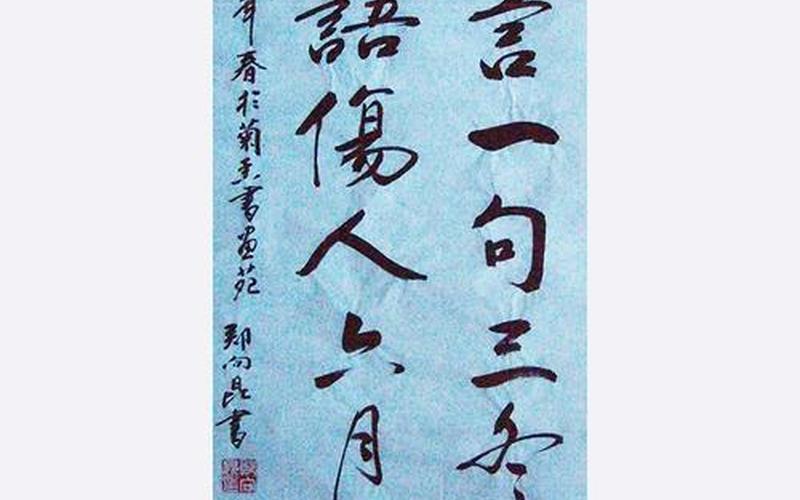 言一句三冬
語傷人六月
年春於菊香書畫苑 鄭向昆書